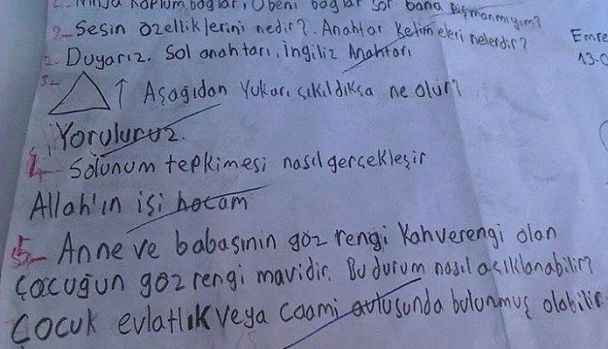 Kaplumbağlar, O beni bağlar sor bana pişmanmıyım?
2- Sesin özelliklerini nedir? Anahtar kelimeleri nelerdir?
Emre
2. Duyarız. Sol anahtarı, İngiliz Anahtarı
13-0
3- ↑ Aşağıdan yukarı çıkıldıkça ne olur?
Yoruluruz.
4- Solunum tepkimesi nasıl gerçekleşir
Allah'ın işi hocam
5- Anne ve babasının göz rengi Kahverengi olan
çocuğun göz rengi mavidir. Bu durum nasıl açıklanabilir?
Çocuk evlatlık veya Caami avlusunda bulunmuş olabilir